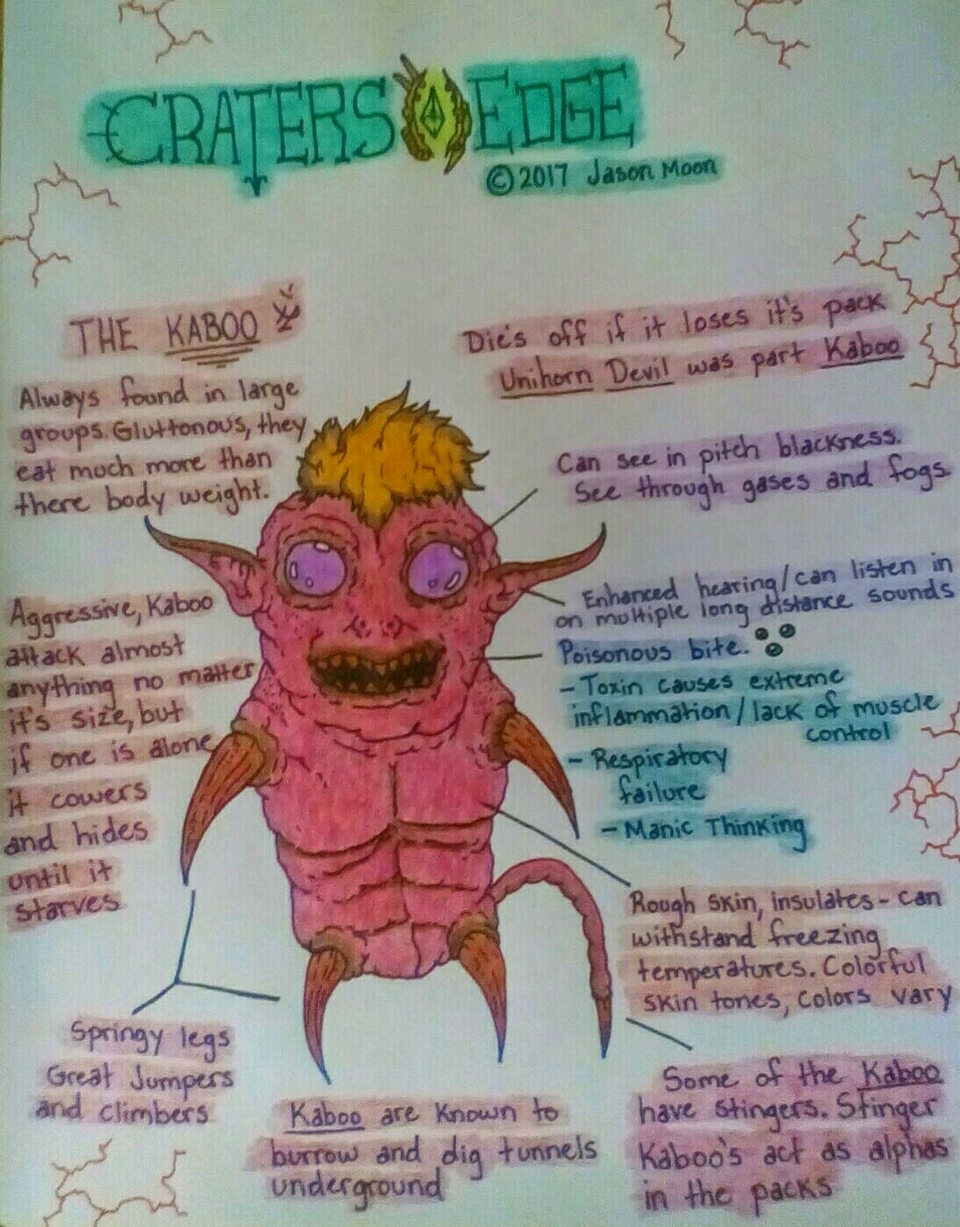 CRATERS EDGE
©2017 Jason Moon
THE KABOO
Always found in large
groups. Gluttonous, they
eat much more than
there body weight.
Aggressive, Kaboo
attack almost
anything no matter
it's size, but
if one is alone
it cowers
and hides
until it
starves
Springy legs
Great Jumpers
and climbers
Kaboo are known to
burrow and dig tunnels
underground
Die's off if it loses it's pack
Unihorn Devil was part Kaboo
Can see in pitch blackness.
See through gases and fogs
Enhanced hearing/can listen in
on multiple long distance sounds
Poisonous bite.
- Toxin causes extreme
inflammation/lack of muscle
control
- Respiratory
failure
- Manic Thinking
Rough skin, insulates - can
withstand freezing
temperatures. Colorful
skin tones, colors vary
Some of the Kaboo
have stingers. Stinger
Kaboo's act as alphas
in the packs